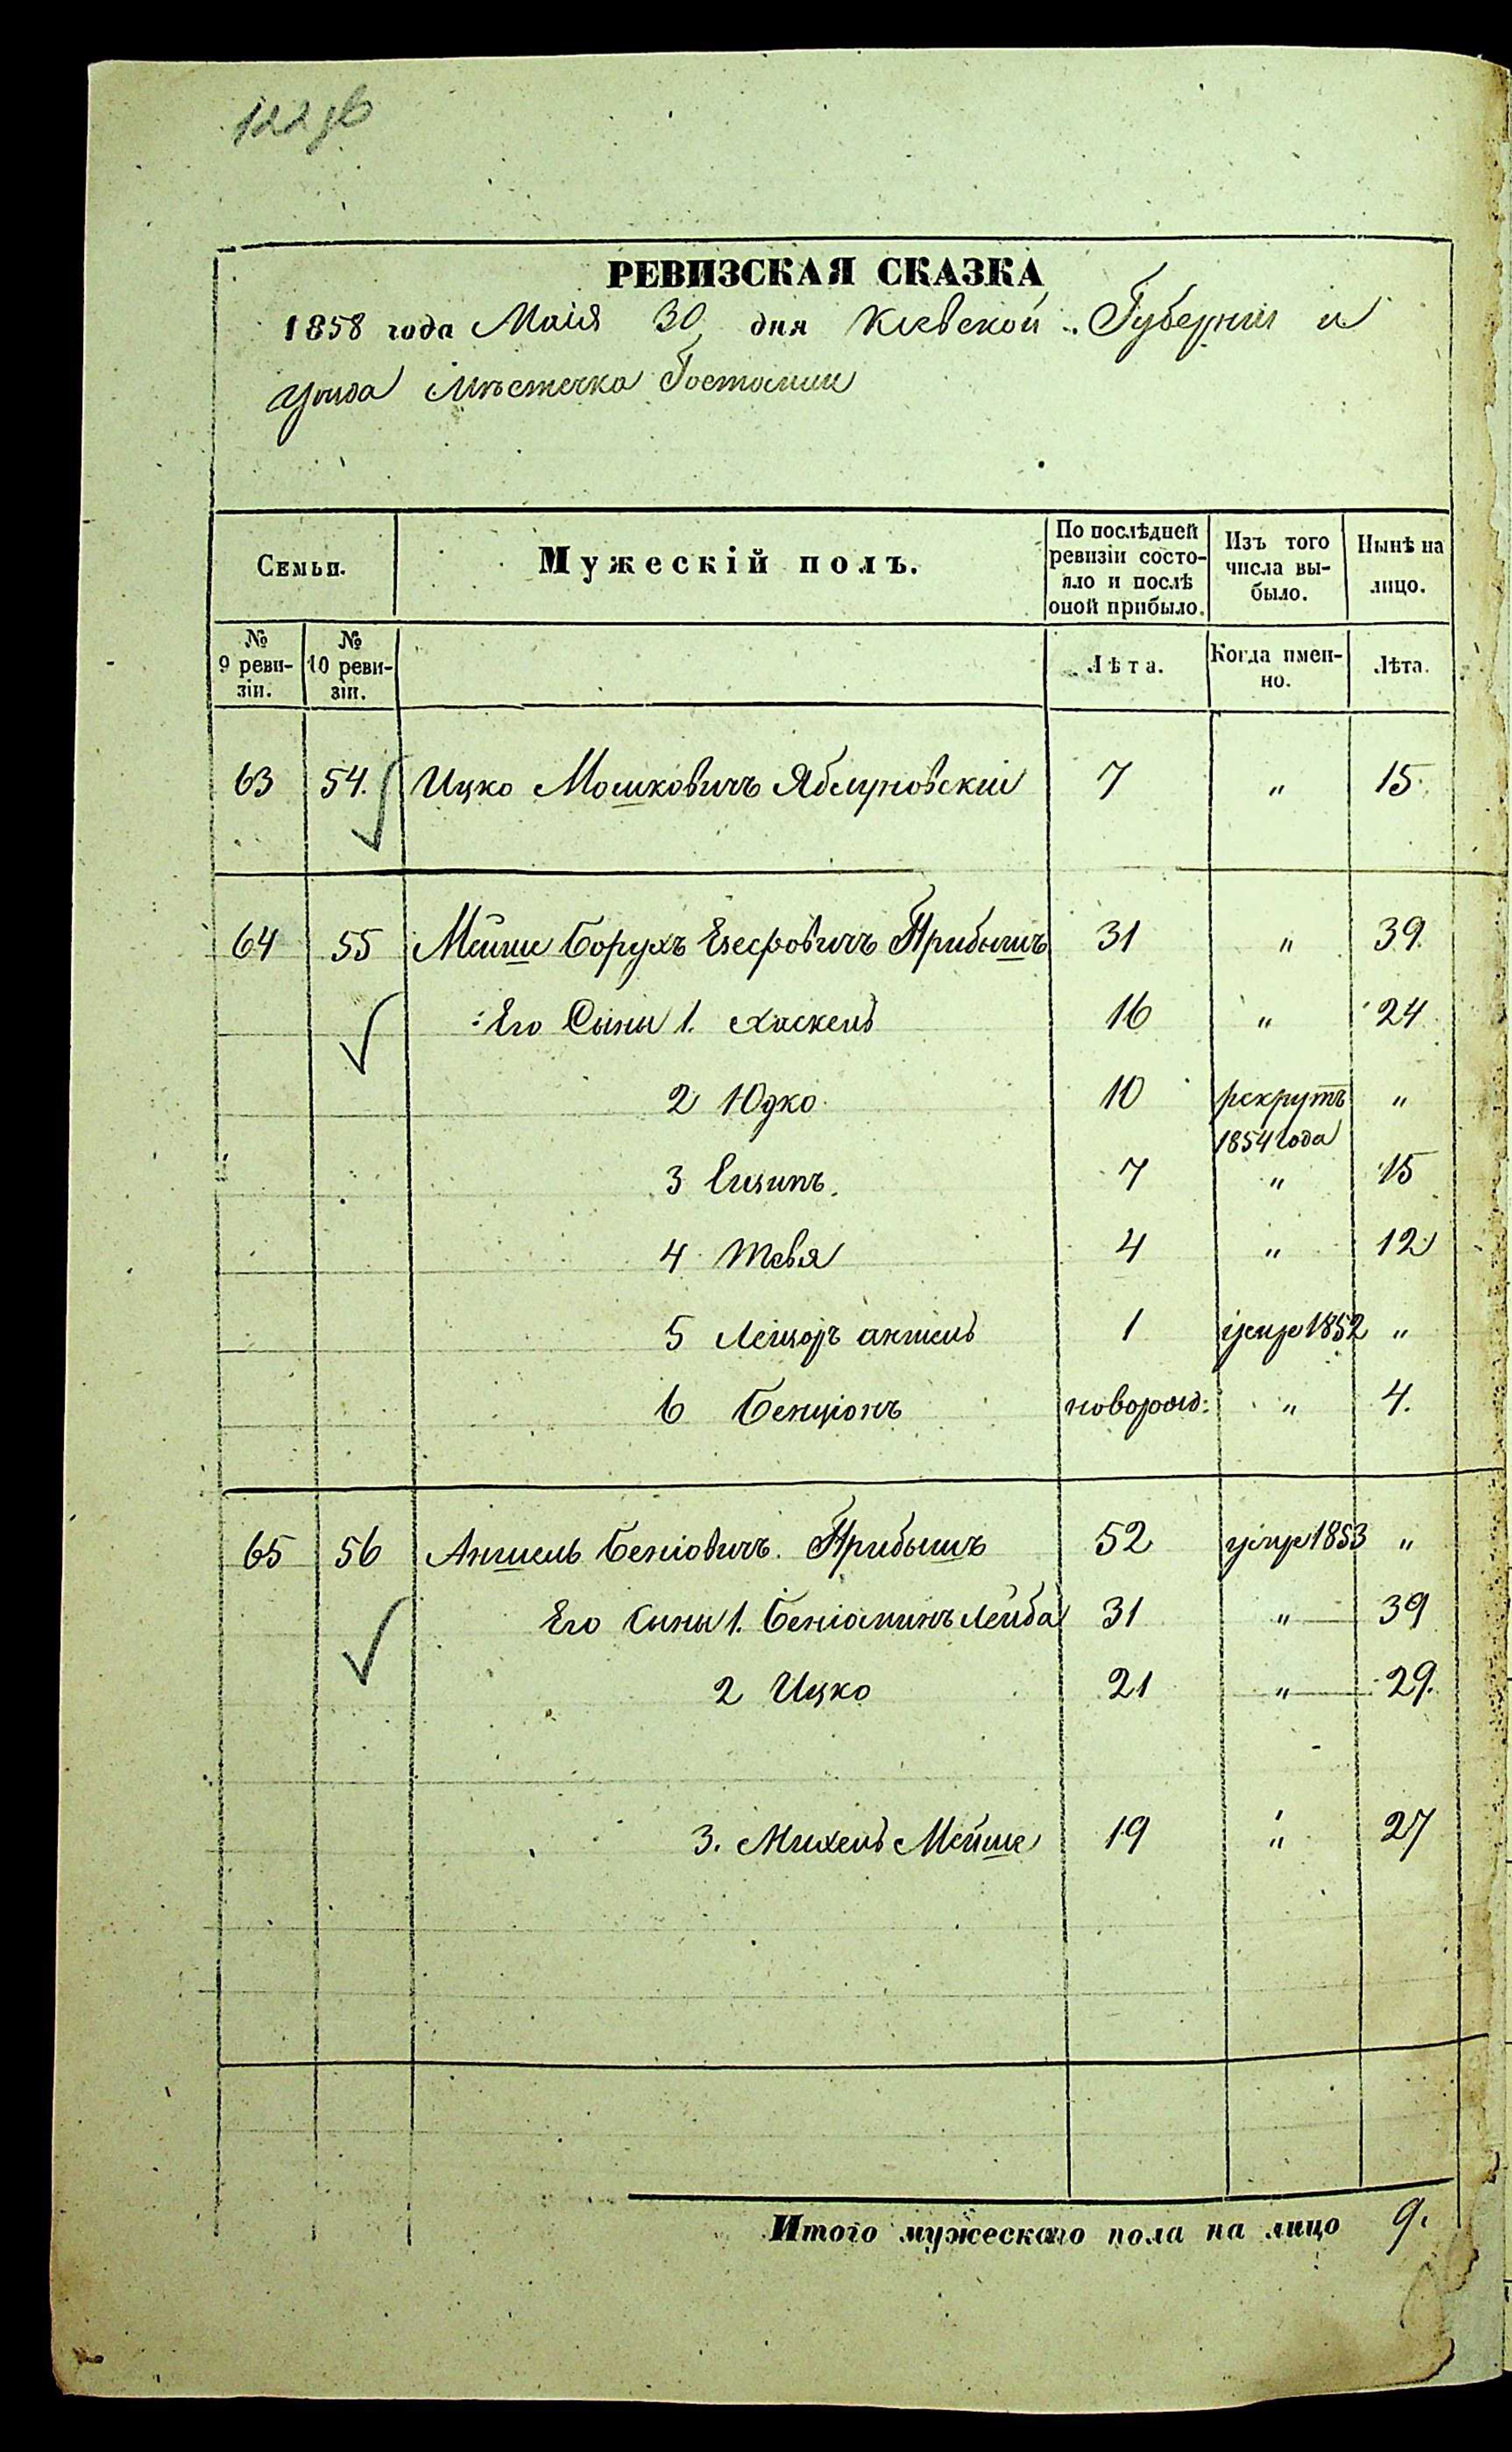 РЕВИЗСКАЯ СКАЗКА
1858 года Маія 30 дня Кіевской Губерніи и
уѣзда Мѣстечка Гостомли
Семьи. Мужескій полъ. По послѣдней ревизіи состояло и послѣ оной прибыло. Изъ того числа выбыло. Нынѣ на лицо.
№ 9 ревизіи. № 10 ревизіи. Лѣта. Когда именно. Лѣта.
63 54. Ицко Мошковичъ Яблуновскій 7 " 15
64 55 Мейше Борухъ Прибышъ 31 " 39.
Его Сыны 1. Хаскель 16 " 24
2 Юдко 10 рекрутъ 1854 года "
3 7 " 15
4 Тевя 4 " 12
5 Лейзоръ Аншель 1 умре 1852 "
6 Бенціонъ новорож: " 4.
65 56 Аншель Беніовичъ Прибышъ 52 умре 1853 "
Его Сыны 1. Беніаминъ Лейба 31 " 39
2 Ицко 21 " 29.
3. Михель Мейше 19 " 27
Итого мужескаго пола на лицо 9.